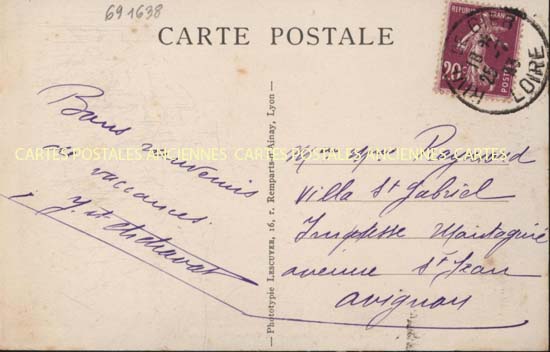 691638
CARTE POSTALE
REPUBLIQUE FRAN
20c
POSTES
LOIRE
CARTES POSTALES ANCIENNES CARTES POSTALES ANCIENNES CARTES
Bons souvenirs
de vaccances.
— Phototypie LESCUYER, 16, r. Remparts-d'Ainay, Lyon —
Raynaud
Villa St Gabriel
Impasse Montaguié
avenue St Jean
avignon